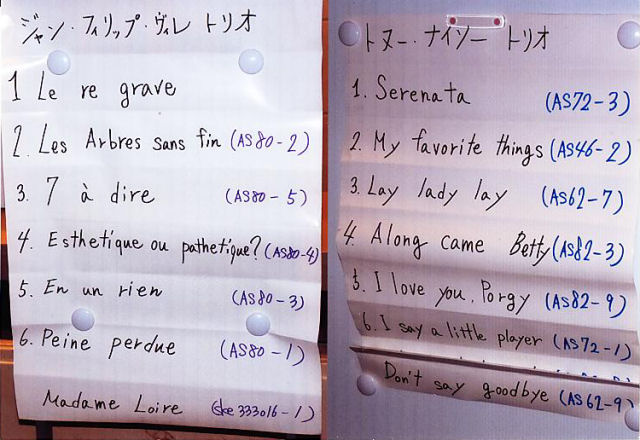 ジャン・フィリップ・ヴィレ トリオ
1 Le re grave
2. Les Arbres sans fin (AS80-2)
3. 7 à dire (AS80-5)
4. Esthetique ou pathetique? (AS80-4)
5. En un rien (AS80-3)
6. Peine perdue (AS80-1)
Madame Loire (ske 333016-1)
トヌー・ナイソー トリオ
1. Serenata (AS72-3)
2. My favorite things (AS46-2)
3. Lay lady lay (AS62-7)
4. Along came Betty (AS82-3)
5. I love you, Porgy (AS82-9)
6. I say a little player (AS72-1)
Don't say goodbye (AS62-9)